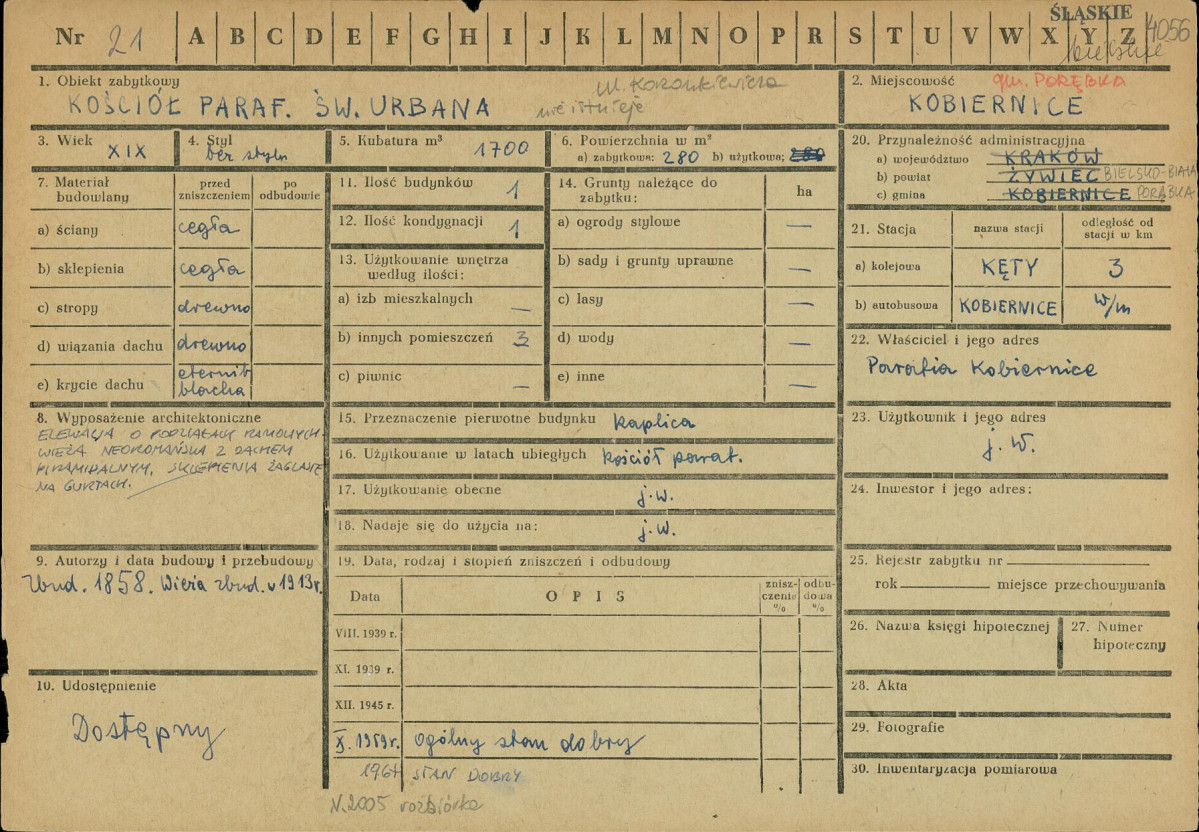 Nr 21 A B C D E F G H I J K L M N O P R S T U V W X Y Z
ŚLĄSKIE
4056
bielskie
1. Obiekt zabytkowy
KOŚCIÓŁ PARAF. ŚW. URBANA
nie istnieje
2. Miejscowość
gm. PORĘBKA
KOBIERNICE
3. Wiek
XIX
4. Styl
bez stylu
5. Kubatura m³
1700
6. Powierzchnia w m²
a) zabytkowa: 280 b) użytkowa: 280
7. Materiał budowlany
przed zniszczeniem
po odbudowie
a) ściany cegła
b) sklepienia cegła
c) stropy drewno
d) wiązania dachu drewno
e) krycie dachu eternit blacha
8. Wyposażenie architektoniczne
ELEWACJA O PODZIAŁACH RAMOWYCH
WIEŻA NEOROMAŃSKA Z DACHEM
PIRAMIDALNYM, SKLEPIENIA ŻAGLASTE
NA GURTACH.
9. Autorzy i data budowy i przebudowy
Zbud. 1858. Wieża zbud. w 1913 r.
10. Udostępnienie
Dostępny
11. Ilość budynków 1
12. Ilość kondygnacji 1
13. Użytkowanie wnętrza
według ilości:
a) izb mieszkalnych —
b) innych pomieszczeń 3
c) piwnic —
14. Grunty należące do
zabytku:
ha
a) ogrody stylowe —
b) sady i grunty uprawne —
c) lasy —
d) wody —
e) inne —
15. Przeznaczenie pierwotne budynku kaplica
16. Użytkowanie w latach ubiegłych kościół paraf.
17. Użytkowanie obecne j.w.
18. Nadaje się do użycia na: j.w.
19. Data, rodzaj i stopień zniszczeń i odbudowy
Data
OPIS
znisz-
czenie
%
odbu-
dowa
%
VIII. 1939 r.
XI. 1939 r.
XII. 1945 r.
X. 1959 r. Ogólny stan dobry
1964 STAN DOBRY
V.2005 rozbiórka
20. Przynależność administracyjna
a) województwo KRAKÓW
b) powiat ŻYWIEC BIELSKO-BIAŁA
c) gmina KOBIERNICE PORĄBKA
21. Stacja
nazwa stacji
odległość od
stacji w km
a) kolejowa KĘTY 3
b) autobusowa KOBIERNICE w/m
22. Właściciel i jego adres
Parafia Kobiernice
23. Użytkownik i jego adres
j. w.
24. Inwestor i jego adres:
25. Rejestr zabytku nr
rok miejsce przechowywania
26. Nazwa księgi hipotecznej
27. Numer
hipoteczny
28. Akta
29. Fotografie
30. Inwentaryzacja pomiarowa